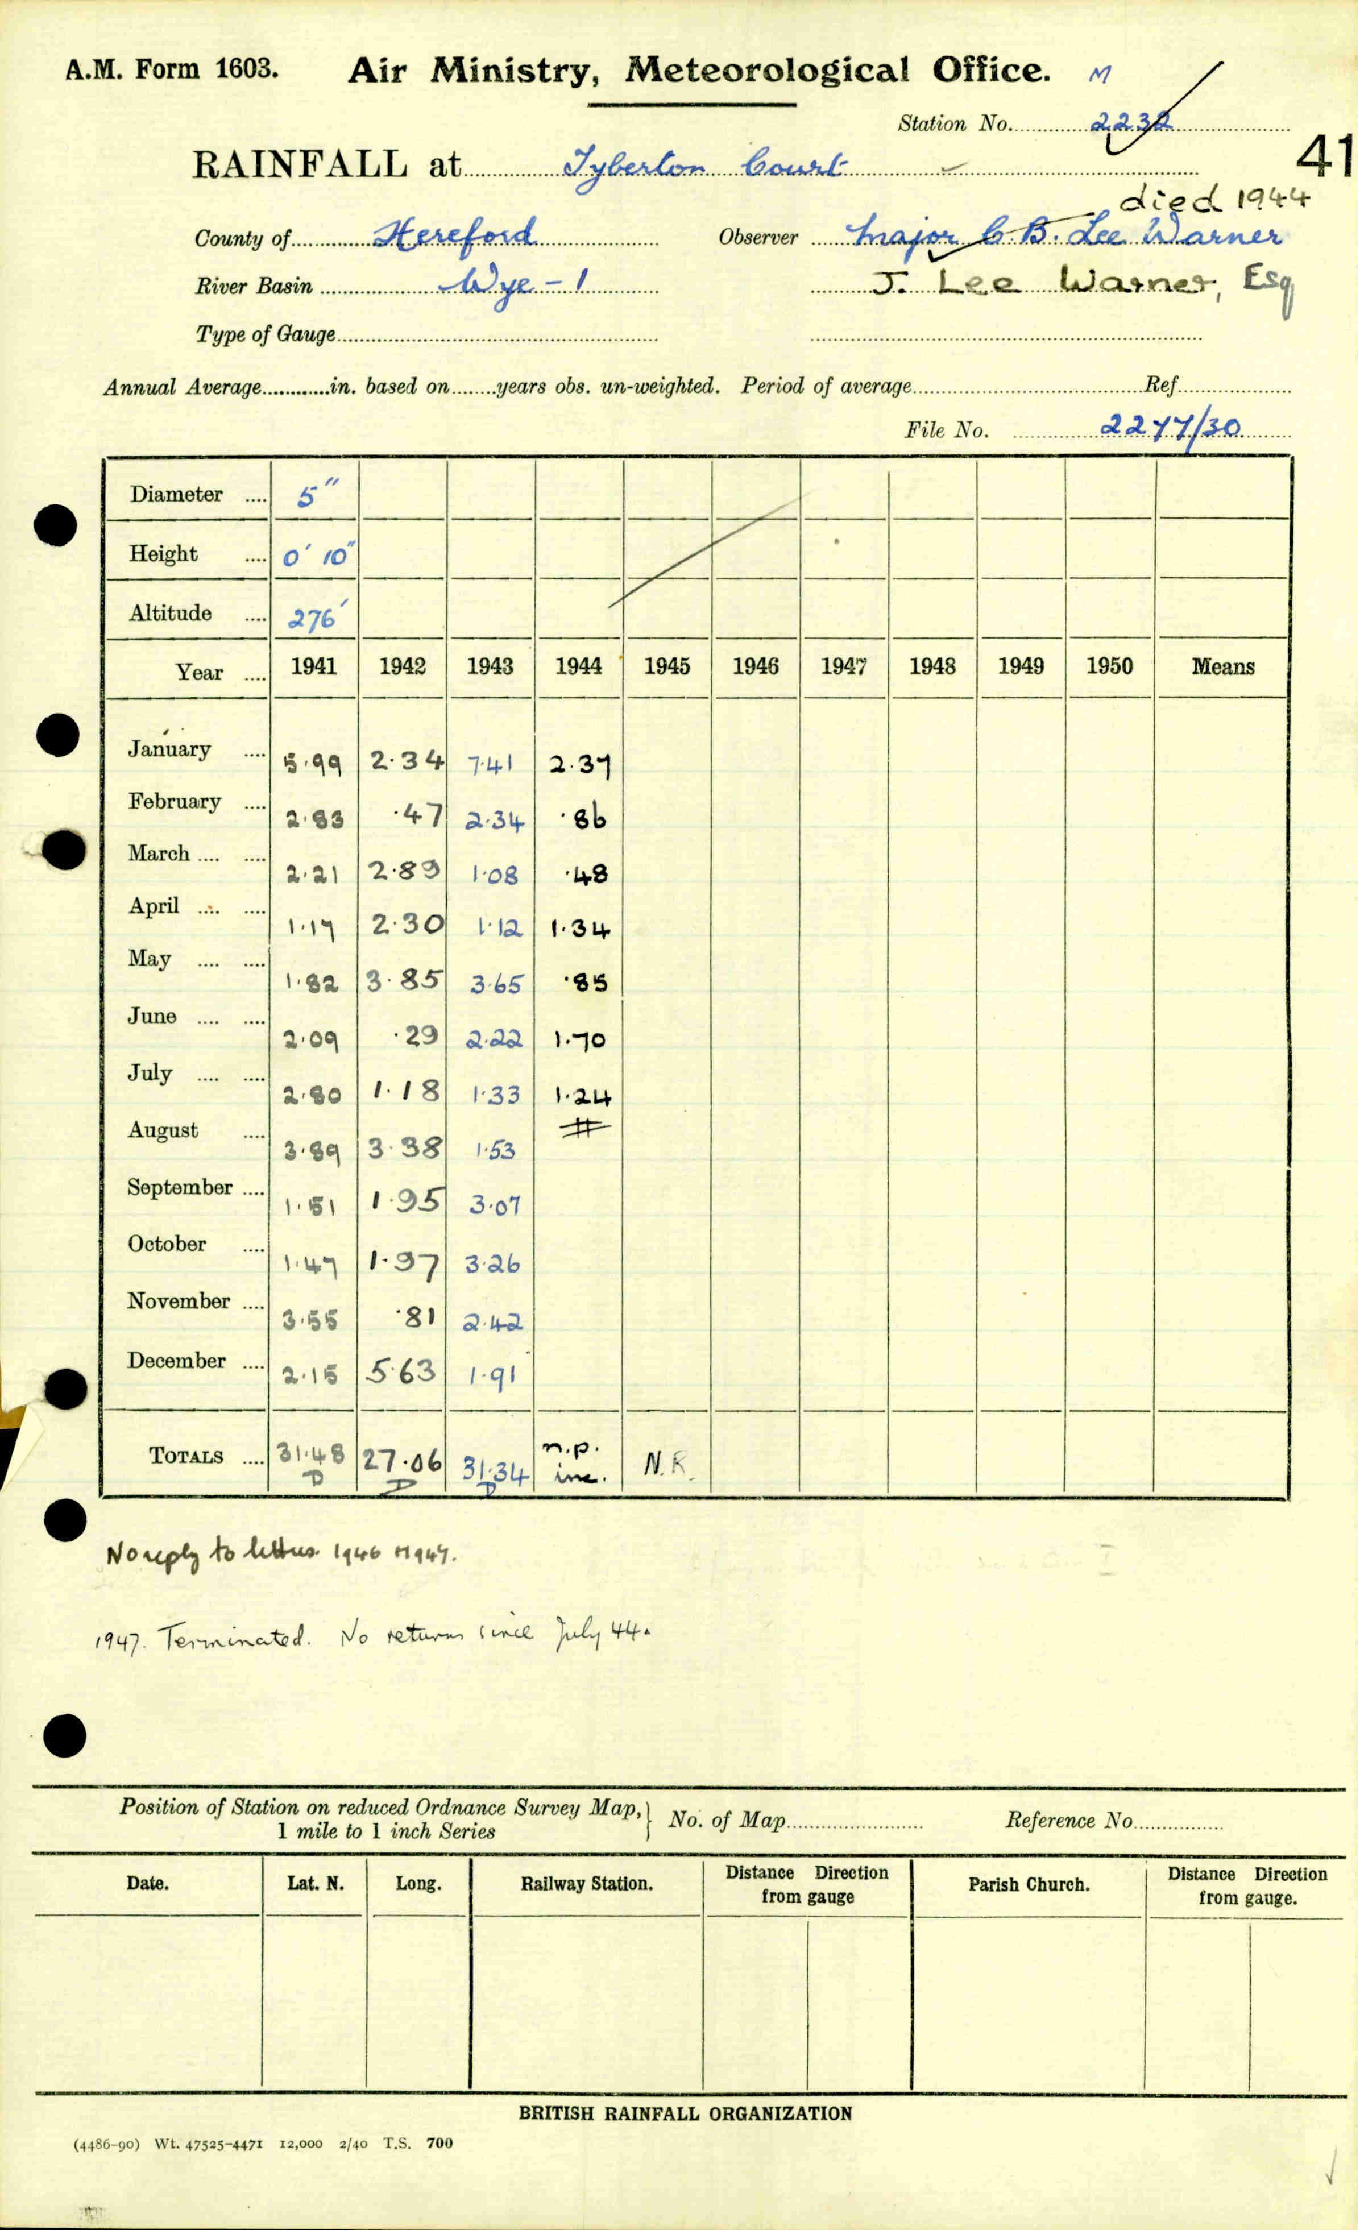 A.M. Form 1603. Air Ministry, Meteorological Office. M
Station No. 2232
41
RAINFALL at Tyberton Court
died 1944
County of Hereford Observer Major C. B. Lee Warner
River Basin Wye - 1 J. Lee Warner, Esq
Type of Gauge
Annual Average in. based on years obs. un-weighted. Period of average Ref
File No. 2277/30
Diameter 5"
Height 0' 10"
Altitude 276'
Year 1941 1942 1943 1944 1945 1946 1947 1948 1949 1950 Means
January 5.99 2.34 7.41 2.37
February 2.83 .47 2.34 .86
March 2.21 2.89 1.08 .48
April 1.17 2.30 1.12 1.34
May 1.82 3.85 3.65 .85
June 2.09 .29 2.22 1.70
July 2.80 1.18 1.33 1.24
August 3.89 3.38 1.53
September 1.51 1.95 3.07
October 1.47 1.97 3.26
November 3.55 .81 2.42
December 2.15 5.63 1.91
TOTALS 31.48 27.06 31.34 n.p. inc. N.R.
D D D
No reply to letters 1946 1947.
1947. Terminated. No returns since July 44.
Position of Station on reduced Ordnance Survey Map, No. of Map Reference No
1 mile to 1 inch Series
Date. Lat. N. Long. Railway Station. Distance Direction from gauge Parish Church. Distance Direction from gauge.
BRITISH RAINFALL ORGANIZATION
(4486-90) Wt. 47525-4471 12,000 2/40 T.S. 700